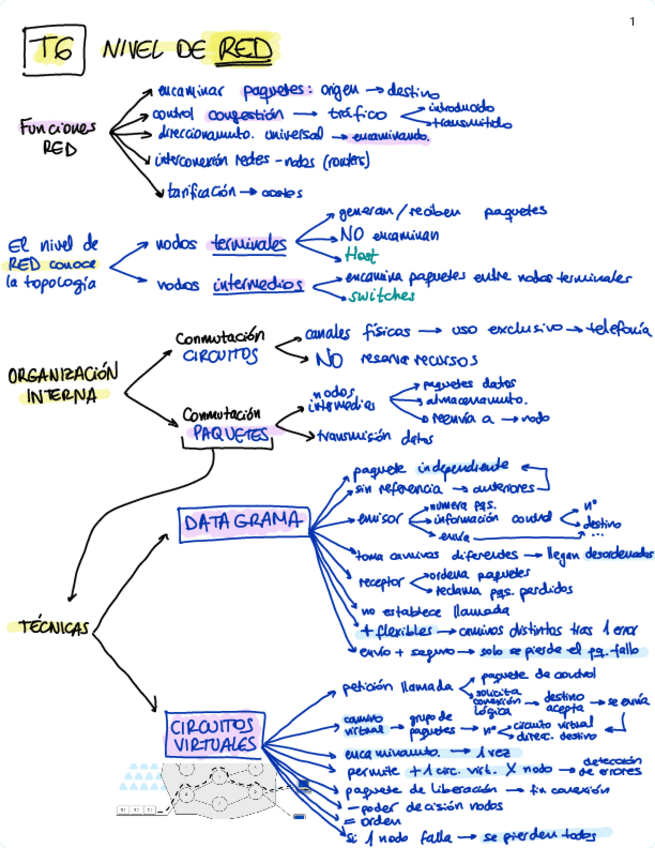 1
T6 NIVEL DE RED
Funciones RED
encaminar paquetes: origen → destino
control congestión → tráfico
introducido
transmitido
direccionamnto. universal → encaminando.
interconexión redes - nodos (routers)
tarificación → costes
El nivel de RED conoce la topología
nodos terminales
generan/reciben paquetes
NO encaminan
Host
nodos intermedios
encamina paquetes entre nodos terminales
switches
ORGANIZACIÓN INTERNA
Conmutación CIRCUITOS
canales físicas → uso exclusivo → telefonía
NO reserva recursos
Conmutación PAQUETES
nodos intermedios
paquetes datos
almacenamnto.
reenvía a → nodo
transmisión datos
TÉCNICAS
DATAGRAMA
paquete independiente
sin referencia → anteriores
emisor
numera pqs.
información control
nº
destino
...
envía
toma caminos diferentes → llegan desordenados
receptor
ordena paquetes
reclama pqs. perdidos
no establece llamada
+ flexibles → caminos distintos tras 1 error
envío + seguro → solo se pierde el pq. fallo
CIRCUITOS VIRTUALES
petición llamada
paquete de control
solicita conexión lógica → destino acepta → se envía
camino virtual → grupo de paquetes → nº
circuito virtual
direc. destino
encaminamnto. → 1 vez
permite + 1 circ. virt. X nodo → detección de errores
paquete de liberación → fin conexión
- poder de decisión nodos
= orden
si 1 nodo falla → se pierden todos